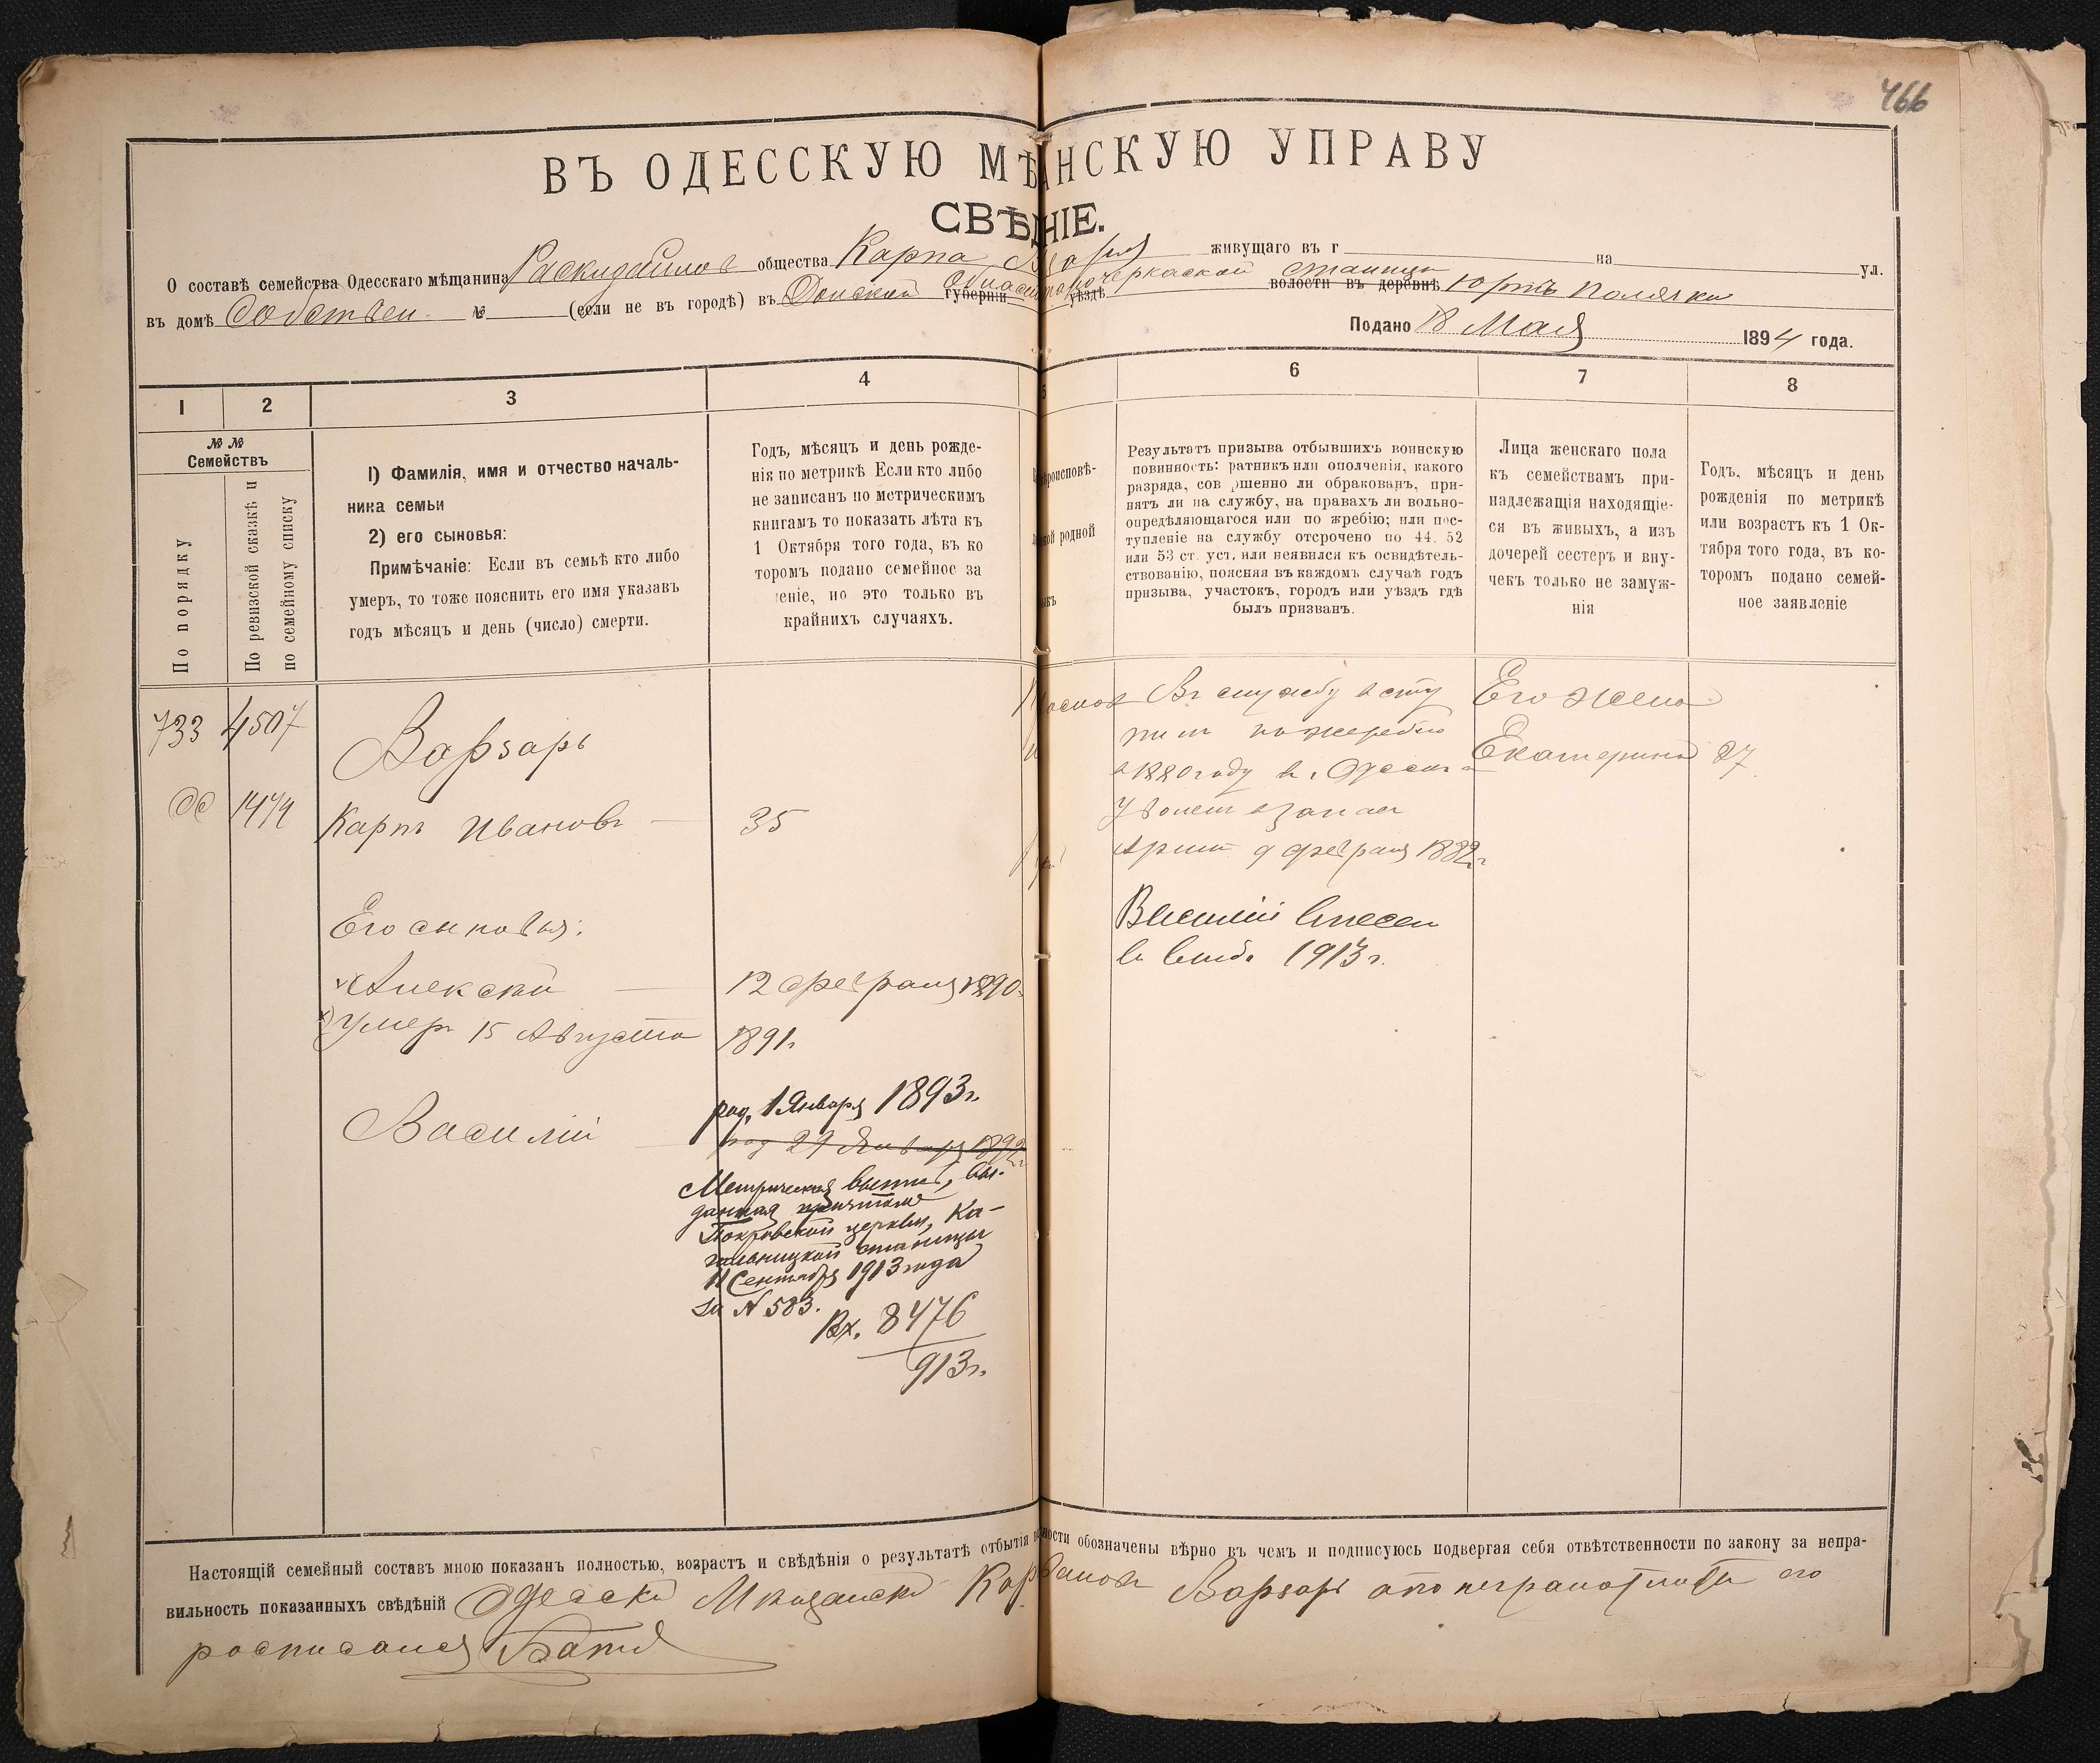 466
ВЪ ОДЕССКУЮ МѢ НСКУЮ УПРАВУ
СВѢДНІЕ.
О составѣ семейства Одесскаго мѣщанина Раскидайлов общества Карпа живущаго въ г на ул.
въ домѣ Собствен. № (если не въ городѣ) въ Донской губерніи уѣздѣ волости въ деревнѣ станица Юртъ Поляки
Подано 18 Мая 1894 года.
1 2 3 4 5 6 7 8
№ № Семействъ
По порядку
По ревизской сказкѣ и
по семейному списку
1) Фамилія, имя и отчество началь-
ника семьи
2) его сыновья:
Примѣчаніе: Если въ семьѣ кто либо
умеръ, то тоже пояснить его имя указавъ
годъ мѣсяцъ и день (число) смерти.
Годъ, мѣсяцъ и день рожде-
нія по метрикѣ Если кто либо
не записанъ по метрическимъ
книгамъ то показать лѣта къ
1 Октября того года, въ ко
торомъ подано семейное за
леніе, но это только въ
крайнихъ случаяхъ.
роисповѣ-
родной
Результатъ призыва отбывшихъ воинскую
повинность: ратникъ или ополченія, какого
разряда, сов ршенно ли обракованъ, при-
нятъ ли на службу, на правахъ ли вольно-
опредѣляющагося или по жребію; или пос-
тупленіе на службу отсрочено по 44, 52
или 53 ст. уст. или неявился къ освидѣтель-
ствованію, поясняя въ каждомъ случаѣ годъ
призыва, участокъ, городъ или уѣздъ гдѣ
былъ призванъ.
Лица женскаго пола
къ семействамъ при-
надлежащія находящіе-
ся въ живыхъ, а изъ
дочерей сестеръ и вну-
чекъ только не замуж-
нія
Годъ, мѣсяцъ и день
рожденія по метрикѣ
или возрастъ къ 1 Ок-
тября того года, въ ко-
торомъ подано семей-
ное заявленіе
733 4507
Варзарь
1474
Карпъ Ивановъ 35
Его сыновья:
Алексѣй 12 февраля 1890
Умеръ 15 Августа 1891г
Василій
род. 1 Января 1893г.
род 27 Января 1892г
Метрическая выпись, вы-
данная причтомъ
Покровской церкви, Ка-
гальницкой станицы
11 Сентября 1913 года
за N 583.
Вх. 8476
913г.
Въ службу всту
пил по жеребію
в 1880 году в г. Одесс
Уволен в запас
Арміи 9 февраля 1882г
Василій внесен
в 1913г.
Его жена
Екатерина 27
Настоящій семейный составъ мною показанъ полностью, возрастъ и свѣдѣнія о результатѣ отбытія ности обозначены вѣрно въ чемъ и подписуюсь подвергая себя отвѣтственности по закону за непра-
вильность показанныхъ свѣдѣній Одесскій Мѣщанинъ Карп Иванов Варзарь а по неграмотности его
росписался